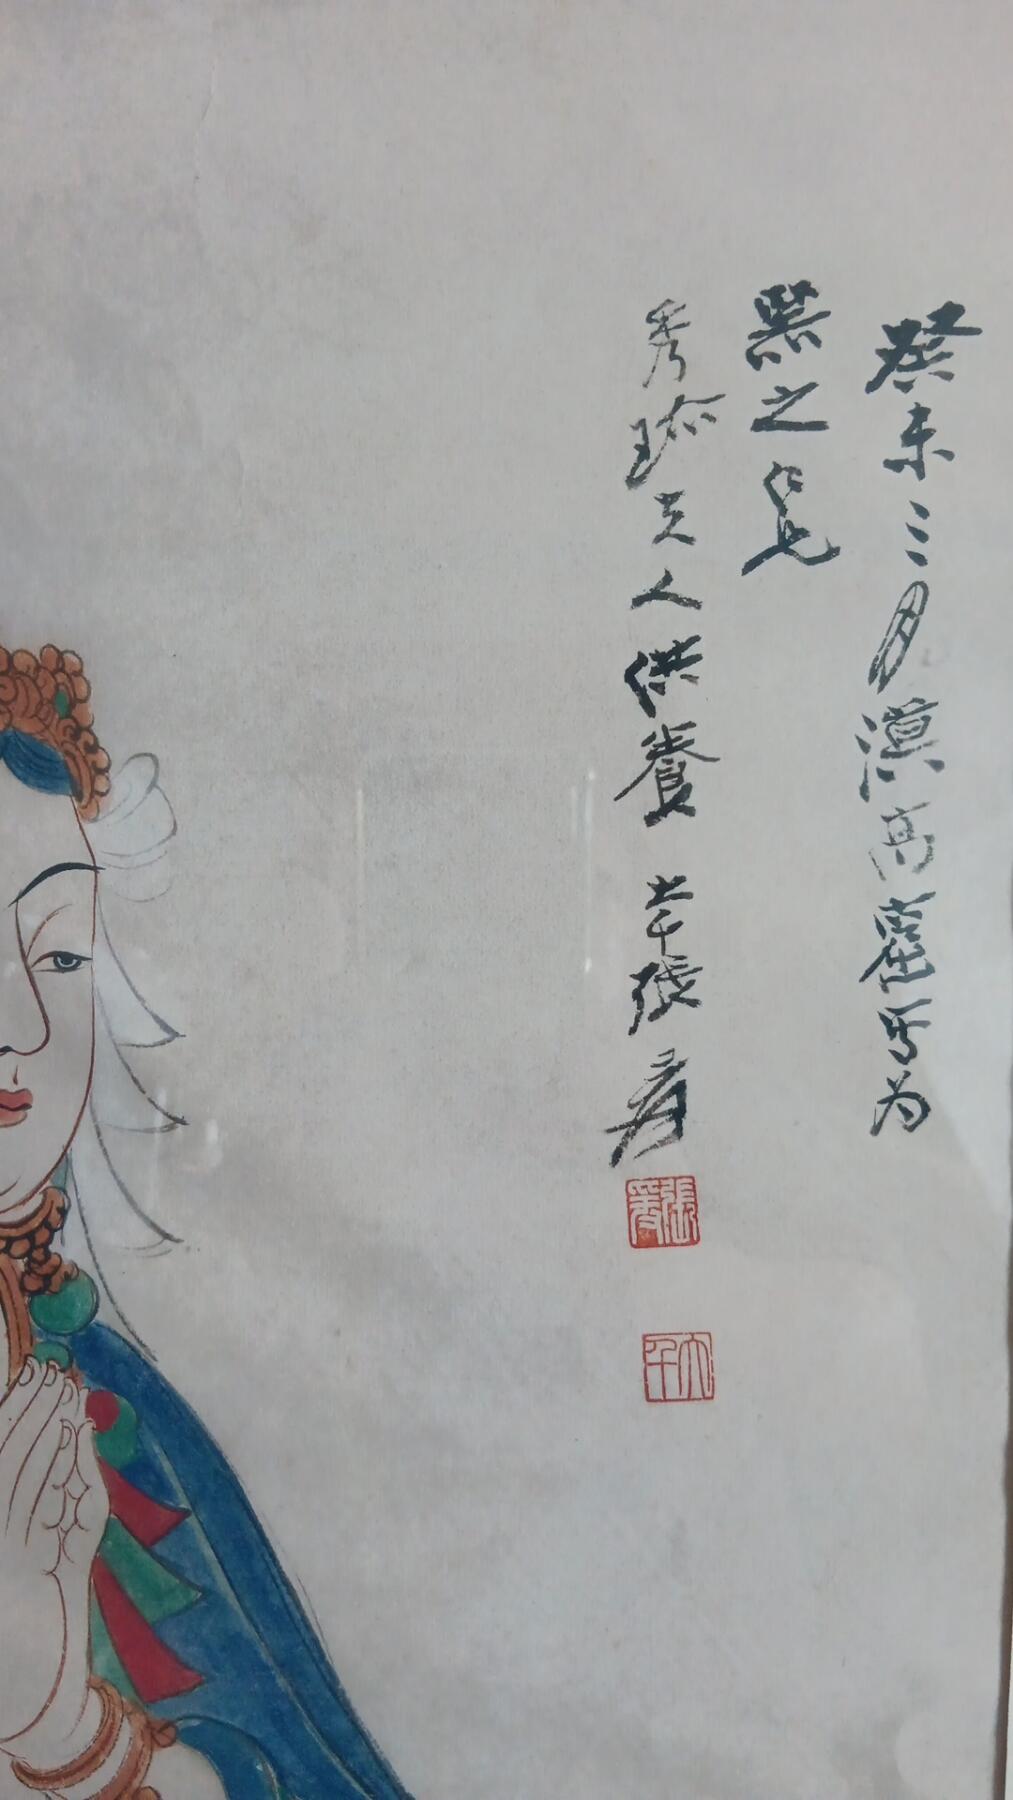 癸未三月漠高窟写为
羆之仁兄
秀琼夫人供養 大千張爰
張爰
大千